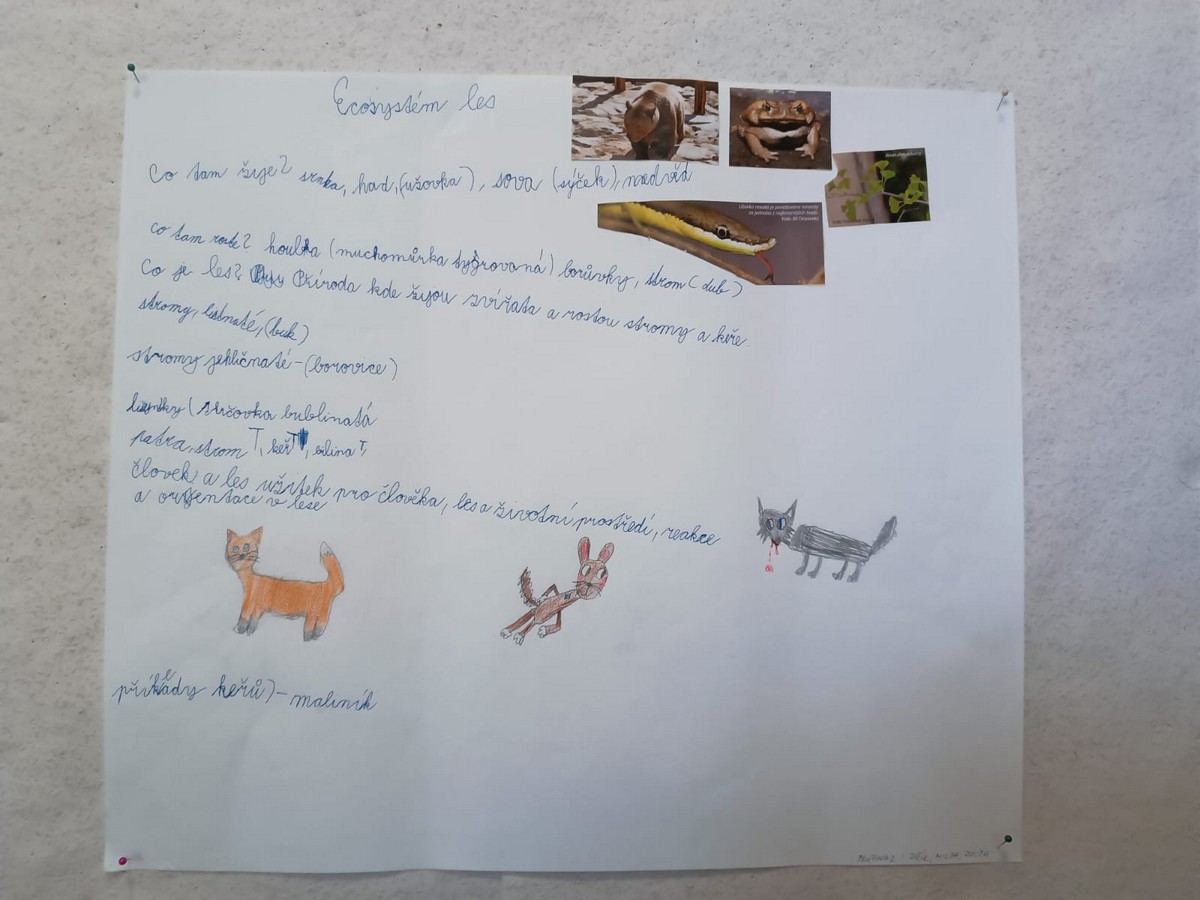 Ecosystém les
Co tam žije? srnka, had, (užovka), sova (sýček), medvěd
co tam roste? houbka (muchomůrka tygrovaná) borůvky, strom (dub)
Co je les? Příroda kde žijou zvířata a rostou stromy a keře
stromy, listnaté, (buk)
stromy jehličnaté - (borovice)
bublinatá
patra, strom, keř, bilina
člověk a les užitek pro člověka, les a životní prostředí, reakce
a orientace v lese
příklady keřů) - maliník